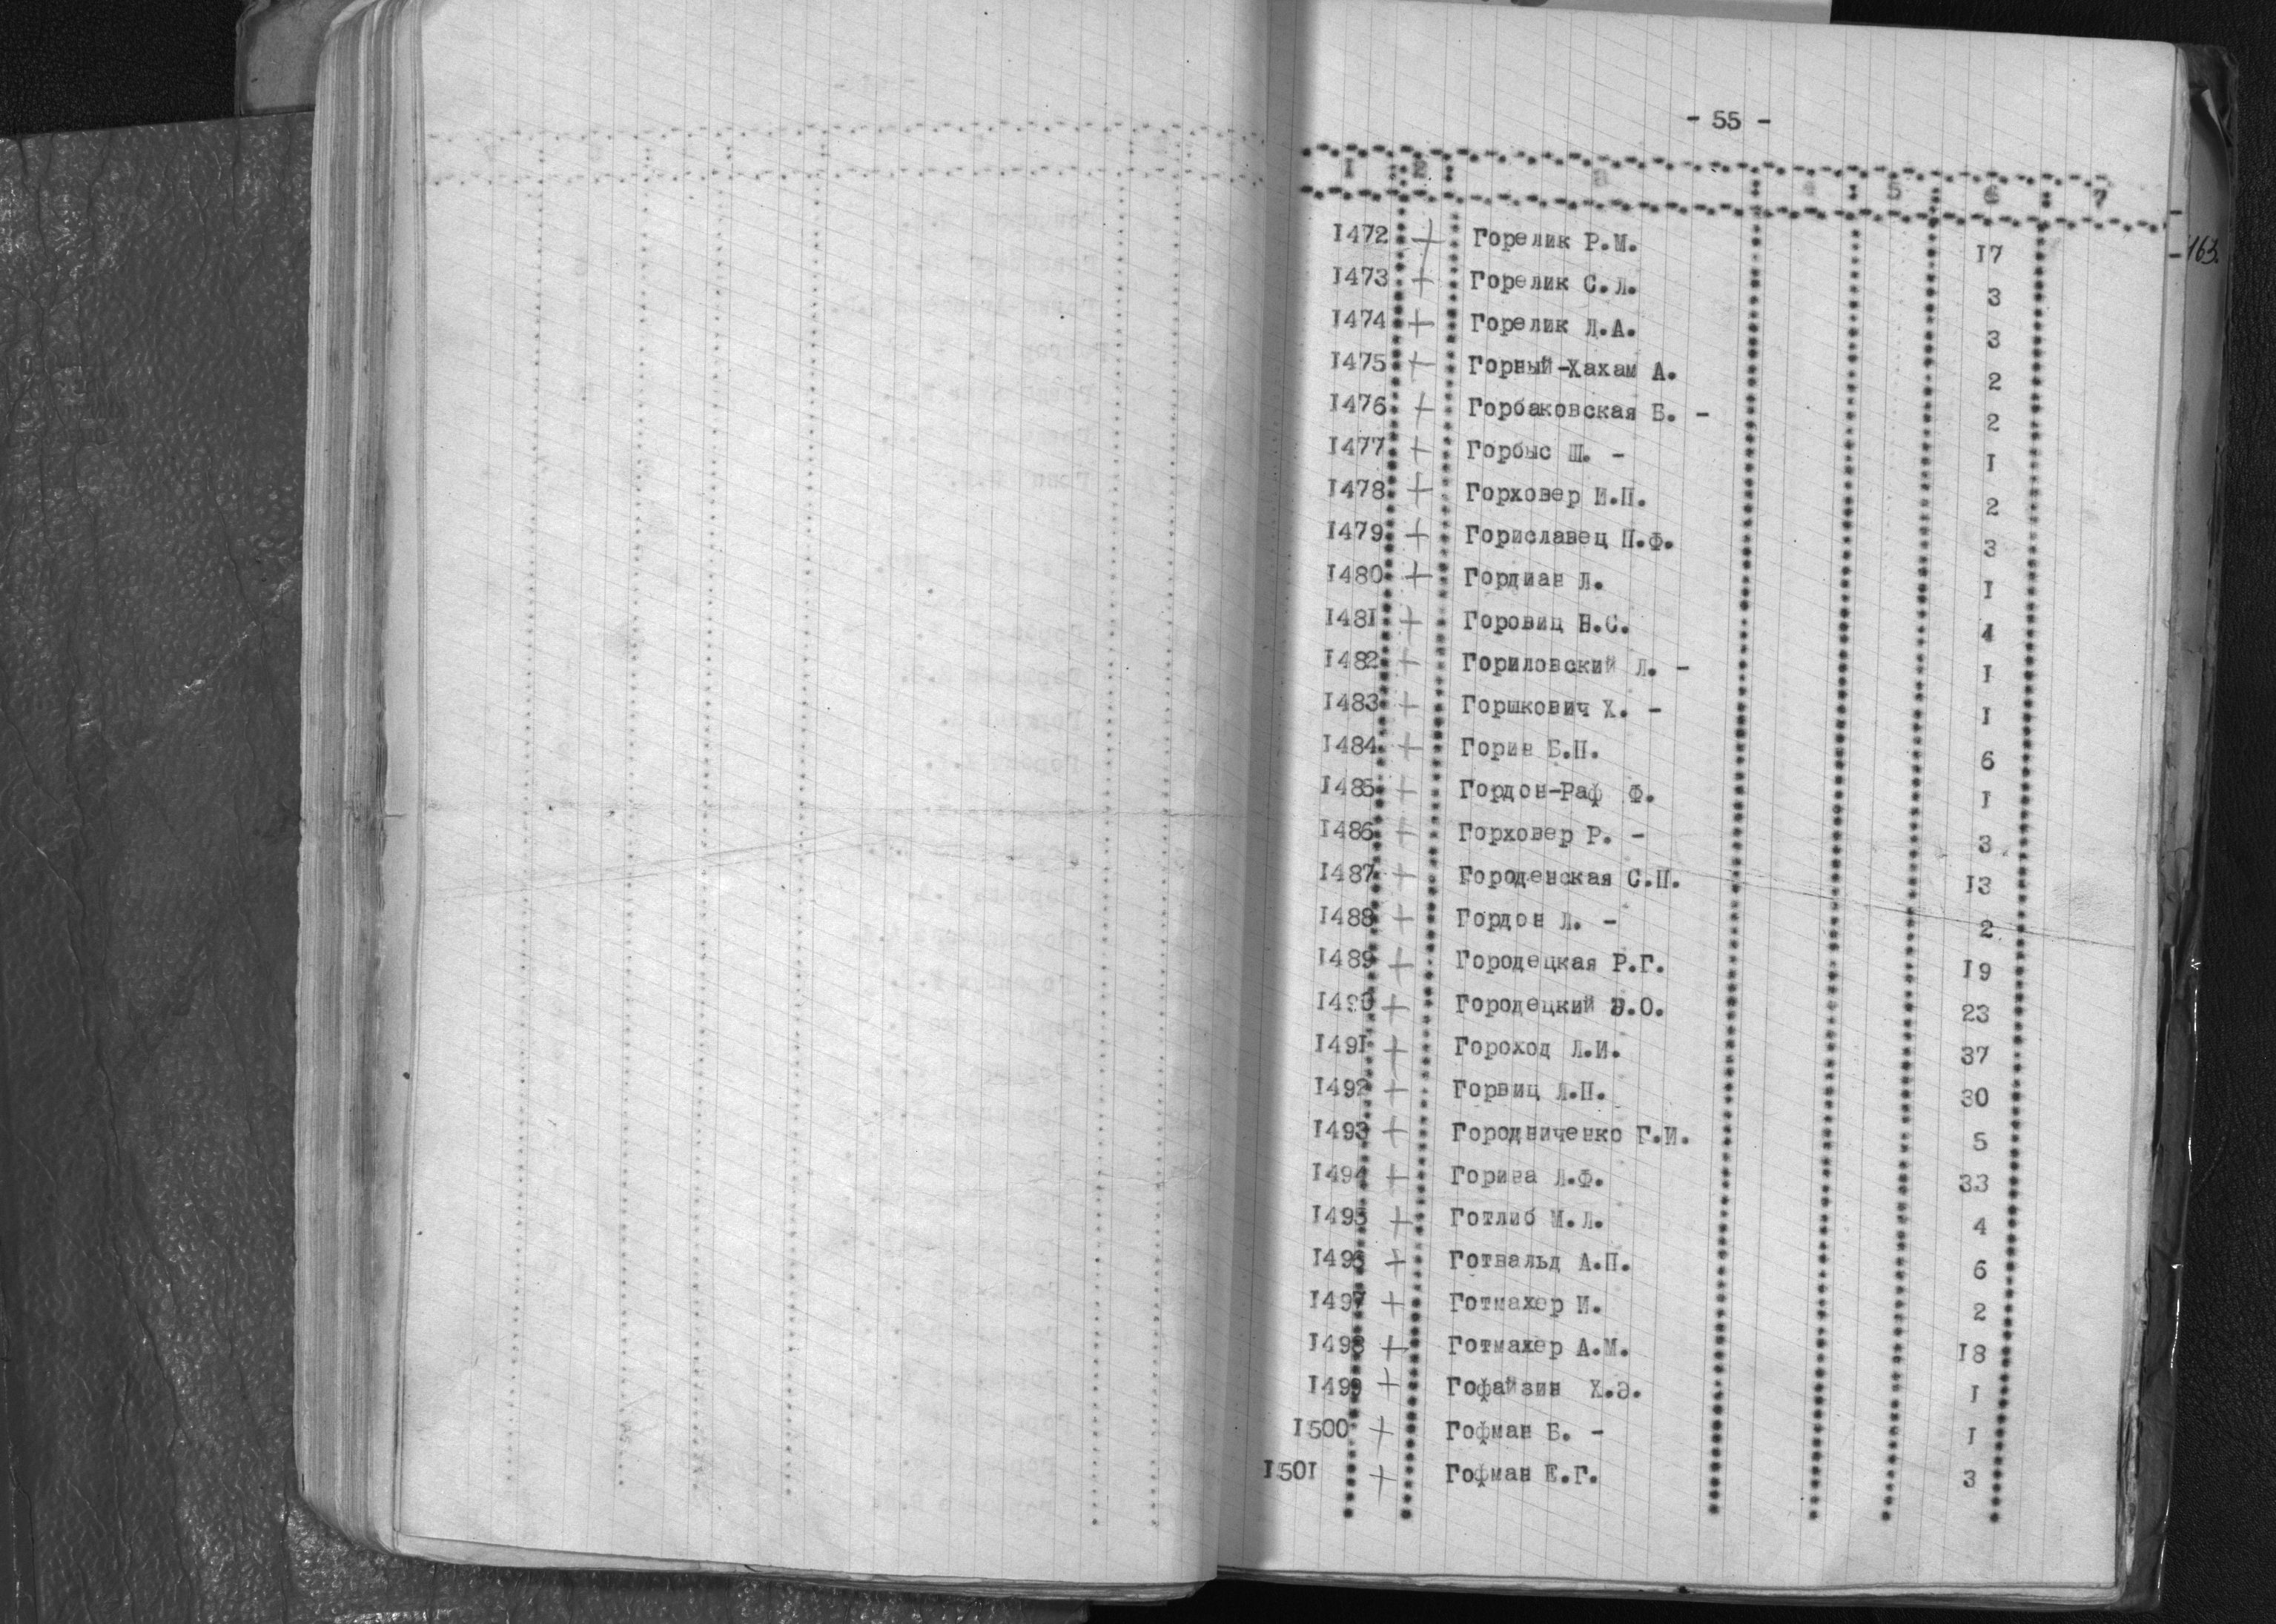 - 55 -
1 2 3 4 5 6 7
163.
1472 + Горелик Р.М. 17
1473 + Горелик С.Л. 3
1474 + Горелик Л.А. 3
1475 + Горный-Хахам А. 2
1476 + Горбаковская Б. - 2
1477 + Горбыс Ш. - 1
1478 + Горховер И.П. 2
1479 + Гориславец П.Ф. 3
1480 + Гордиан Л. 1
1481 + Горовиц Н.С. 4
1482 + Гориловский Л. - 1
1483 + Горшкович Х. - 1
1484 + Горин Б.Н. 6
1485 + Гордон-Раф Ф. 1
1486 + Горховер Р. - 3
1487 + Городенская С.П. 13
1488 + Гордон Л. - 2
1489 + Городецкая Р.Г. 19
1490 + Городецкий О. 23
1491 + Гороход Л.И. 37
1492 + Горвиц Л.П. 30
1493 + Городниченко Г.И. 5
1494 + Горина Л.Ф. 33
1495 + Готлиб М.Л. 4
1496 + Готвальд А.П. 6
1497 + Готмахер И. 2
1498 + Готмахер А.М. 18
1499 + Гофайзин Х.Э. 1
1500 + Гофман Б. - 1
1501 + Гофман Е.Г. 3